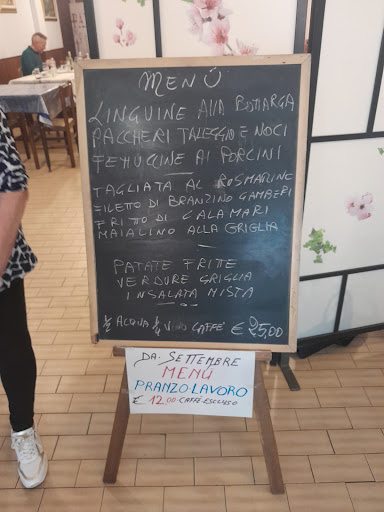 MENÚ
LINGUINE ALLA BOTTARGA
PACCHERI TALEGGIO E NOCI
FETTUCCINE AI PORCINI
TAGLIATA AL ROSMARINO
FILETTO DI BRANZINO GAMBERI
FRITTO DI CALAMARI
MAIALINO ALLA GRIGLIA
PATATE FRITTE
VERDURE GRIGLIA
INSALATA MISTA
½ ACQUA ¼ VINO CAFFE' € 25,00
DA: SETTEMBRE
MENÚ
PRANZO LAVORO
€ 12.00 CAFFÈ ESCLUSO